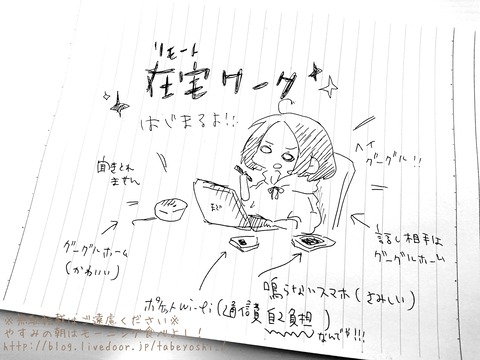 リモート
在宅ワーク
はじまるよ!!
ヘイ
グーグル!!
聞きとれ
ません
まど
グーグルホーム
(かわいい)
話し相手は
グーグルホーム
鳴らないスマホ(さみしい)
ポケットWi-Fi(通信費自己負担)
なんでや!!!
ご遠慮ください※
やすみの朝はモーニング食べよう!
http://blog.livedoor.jp/tabeyoshi